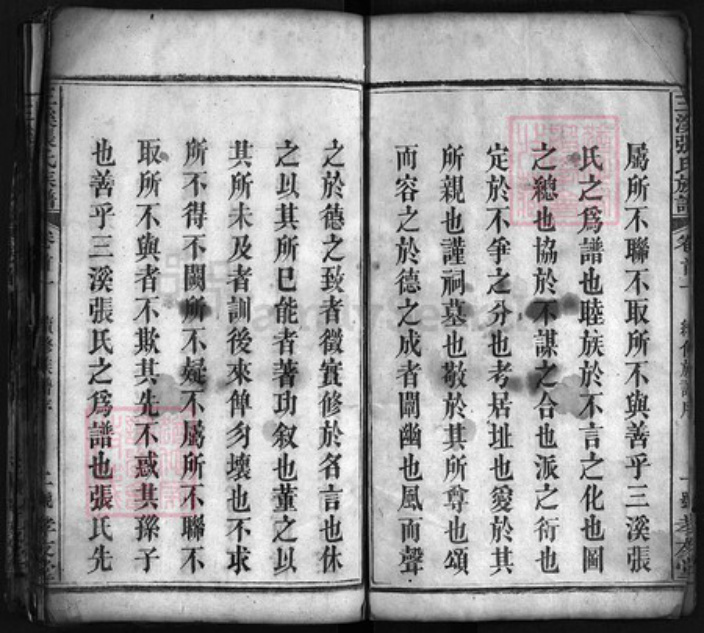 屬所不聯不取所不與善乎三溪張
氏之爲譜也睦族於不言之化也圖
之總也協於不謀之合也派之衍也
定於不爭之分也考居址也爰於其
所親也謹祠墓也敬於其所尊也頌
而容之於德之成者闡幽也風而聲
之於德之致者徵實修於名言也休
之以其所已能者著功叙也董之以
其所未及者訓後來俾勿壞也不求
所不得不闕所不疑不屬所不聯不
取所不與者不欺其先不惑其孫子
也善乎三溪張氏之爲譜也張氏先
三溪張氏族譜 卷首一 續修族譜序 孝友堂